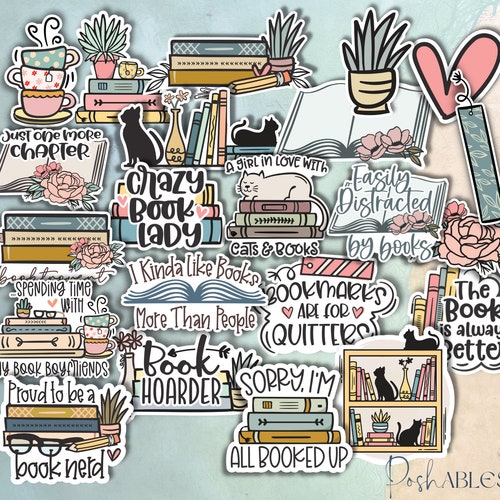 JUST ONE MORE
CHAPTER
CRAZY
BOOK
LADY
A GIRL IN LOVE WITH
CATS & BOOKS
Easily
Distracted
by books
SPENDING TIME
WITH
MY BOOK BOYFRIENDS
I Kinda Like Books
More Than People
BOOKMARKS
ARE FOR
QUITTERS
The
Book
is always
Better
Proud to be a
book nerd
Book
HOARDER
SORRY, I'M
ALL BOOKED UP
POSHABLES